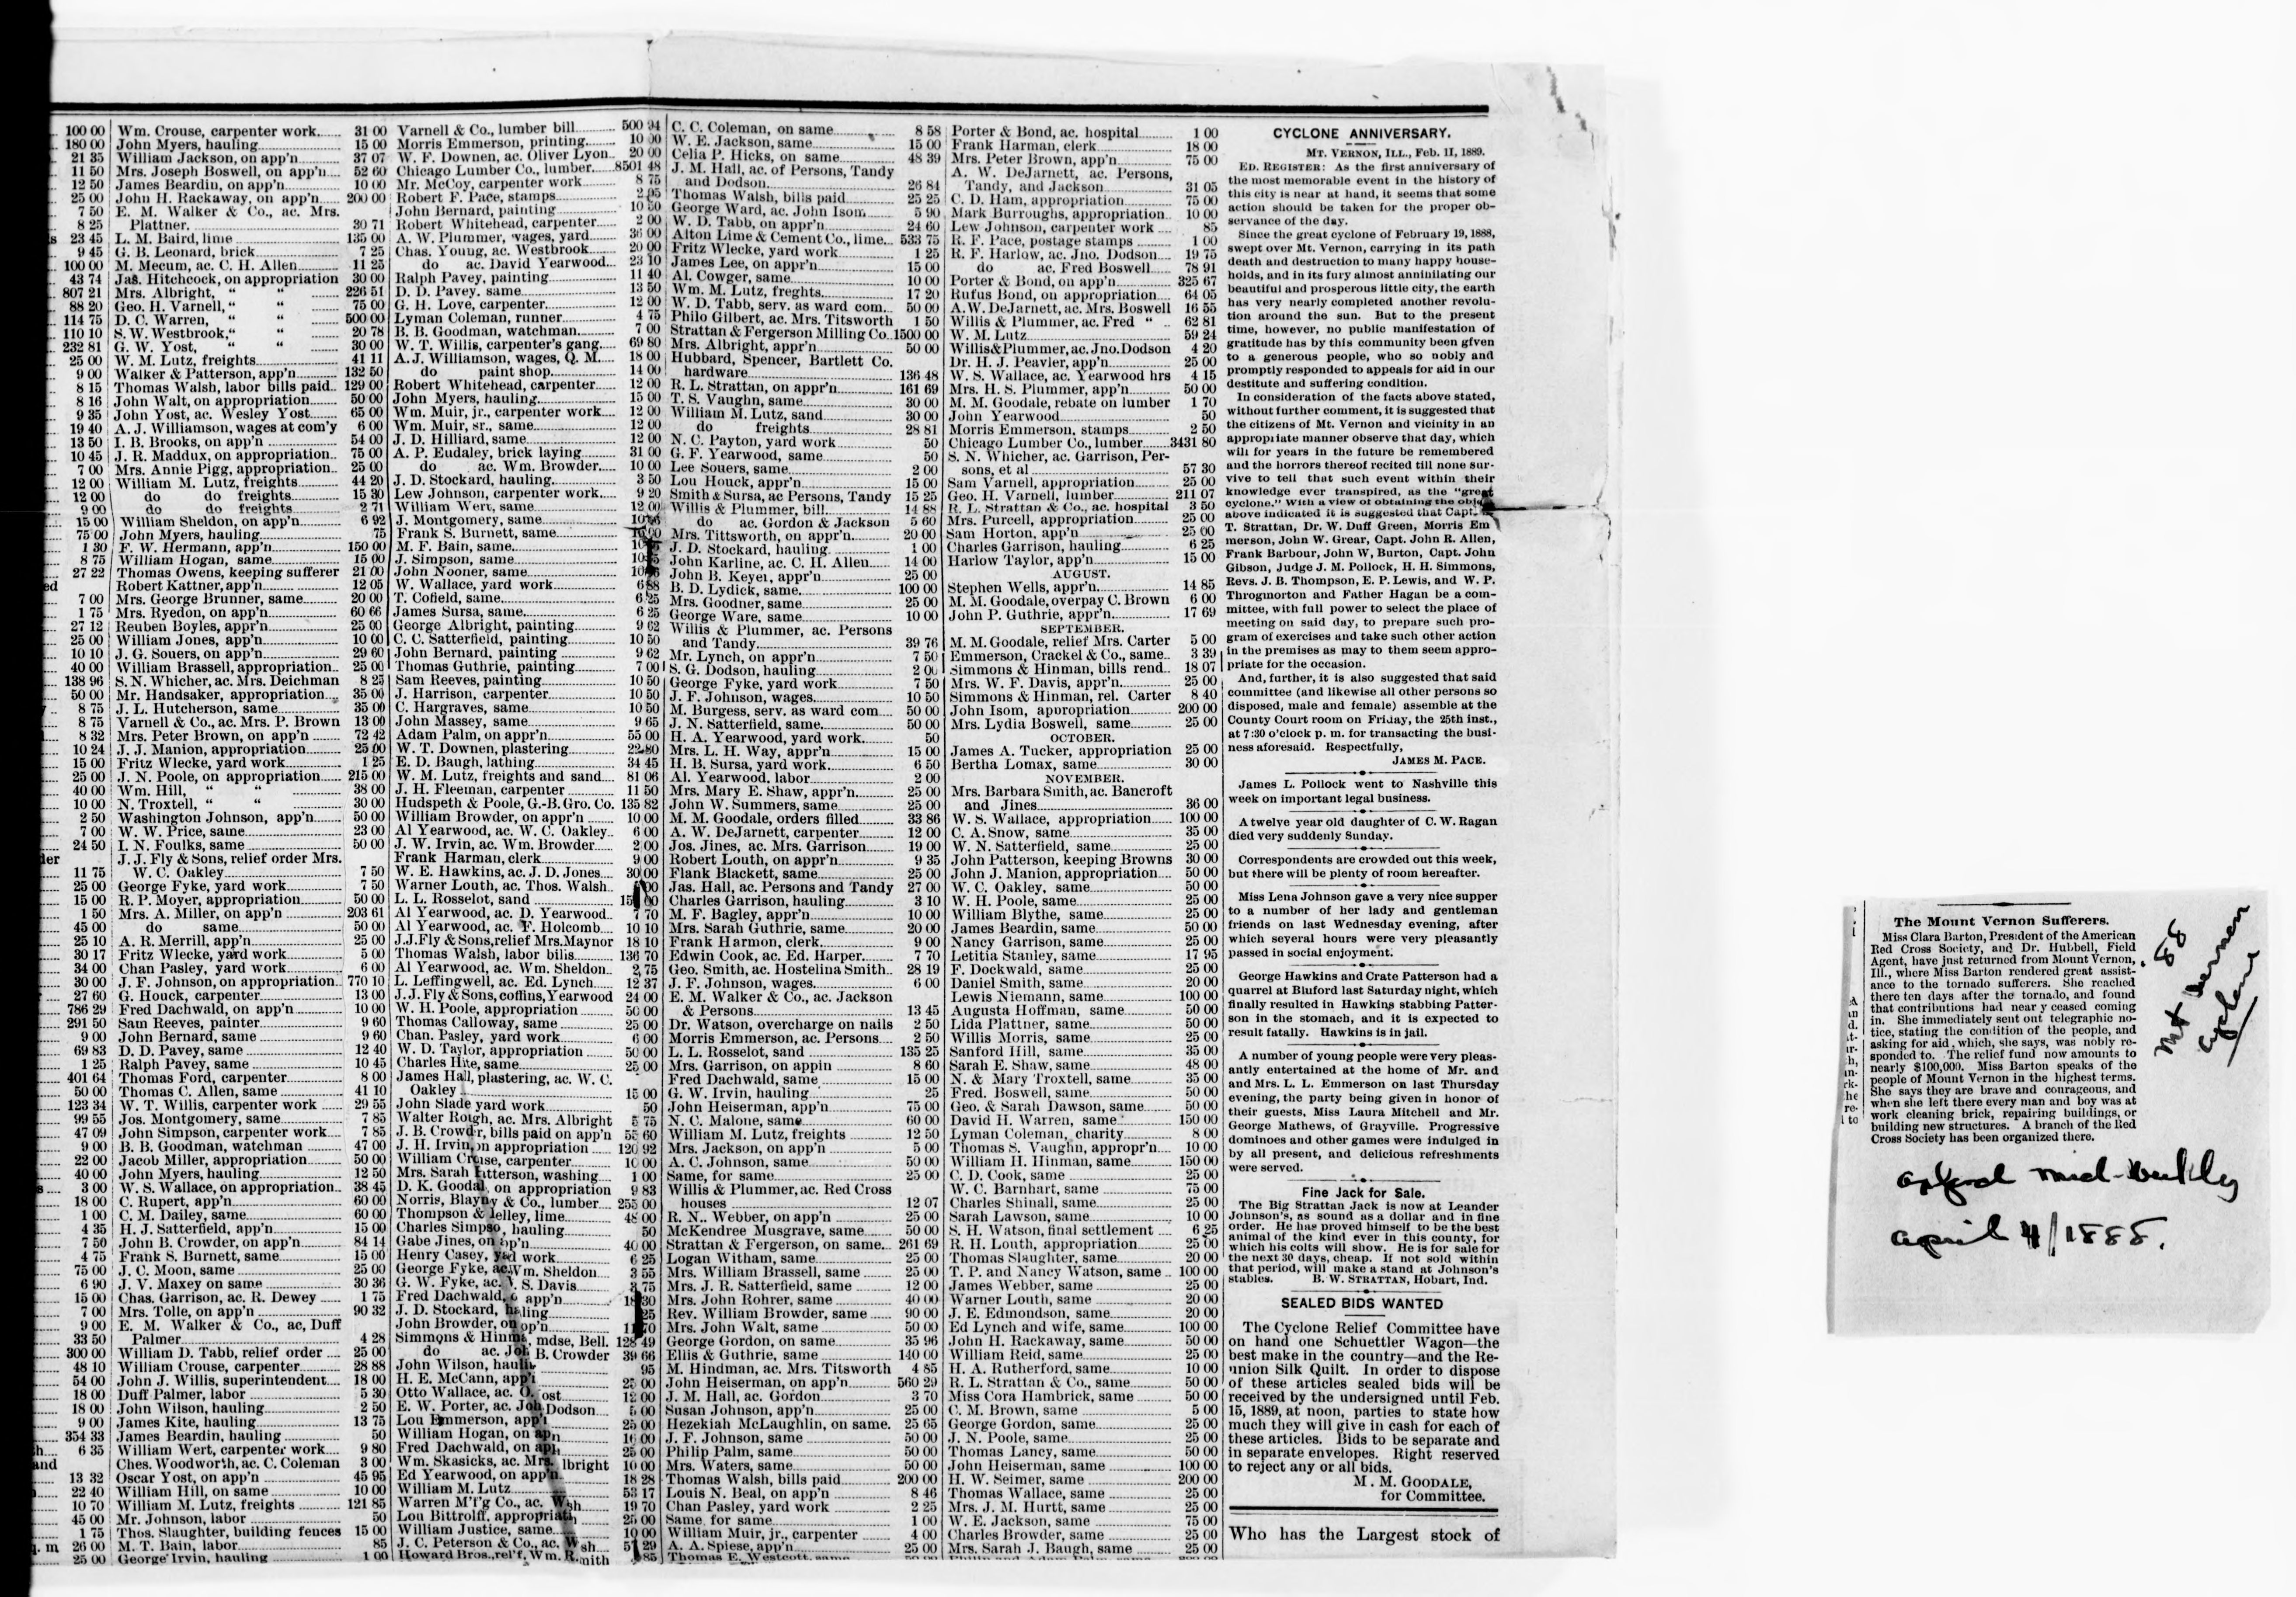 100 00
180 00
21 35
11 50
12 50
25 00
7 50
8 25
23 45
9 45
100 00
43 74
807 21
88 20
114 75
110 10
232 81
25 00
9 00
8 15
8 16
9 35
19 40
13 50
10 45
7 00
12 00
12 00
9 00
15 00
75 00
1 30
8 75
27 22
ed
7 00
1 75
27 12
25 00
10 10
40 00
138 96
50 00
8 75
8 75
8 32
10 24
15 00
25 00
40 00
10 00
2 50
7 00
24 50
der
11 75
25 00
15 00
1 50
45 00
25 10
30 17
34 00
30 00
27 60
786 29
291 50
9 00
69 83
1 25
401 64
50 00
123 34
99 55
47 09
9 00
22 00
40 00
3 00
18 00
1 00
4 35
7 50
4 75
75 00
6 90
15 00
7 00
9 00
33 50
300 00
48 10
54 00
18 00
18 00
9 00
354 33
6 35
and
13 32
22 40
10 70
45 00
1 75
q. m 26 00
25 00
Wm. Crouse, carpenter work 31 00
John Myers, hauling 15 00
William Jackson, on app'n 37 07
Mrs. Joseph Boswell, on app'n 52 60
James Beardin, on app'n 10 00
John H. Rackaway, on app'n 200 00
E. M. Walker & Co., ac. Mrs.
Plattner. 30 71
L. M. Baird, lime 135 00
G. B. Leonard, brick 7 25
M. Mecum, ac. C. H. Allen 11 25
Jas. Hitchcock, on appropriation 30 00
Mrs. Albright, " " 226 51
Geo. H. Varnell, " " 75 00
D. C. Warren, " " 500 00
S. W. Westbrook, " " 20 78
G. W. Yost, " " 30 00
W. M. Lutz, freights 41 11
Walker & Patterson, app'n 132 50
Thomas Walsh, labor bills paid 129 00
John Walt, on appropriation 50 00
John Yost, ac. Wesley Yost 65 00
A. J. Williamson, wages at com'y 6 00
I. B. Brooks, on app'n 54 00
J. R. Maddux, on appropriation 75 00
Mrs. Annie Pigg, appropriation 25 00
William M. Lutz, freights 44 20
do do freights 15 30
do do freights 2 71
William Sheldon, on app'n 6 92
John Myers, hauling 75
F. W. Hermann, app'n 150 00
William Hogan, same 15 00
Thomas Owens, keeping sufferer 21 00
Robert Kattner, app'n 12 05
Mrs. George Brunner, same 20 00
Mrs. Ryedon, on app'n 60 66
Reuben Boyles, app'n 25 00
William Jones, app'n 10 00
J. G. Souers, on app'n 29 60
William Brassell, appropriation 25 00
S. N. Whicher, ac. Mrs. Deichman 8 25
Mr. Handsaker, appropriation 35 00
J. L. Hutcherson, same 35 00
Varnell & Co., ac. Mrs. P. Brown 13 00
Mrs. Peter Brown, on app'n 72 42
J. J. Manion, appropriation 25 00
Fritz Wlecke, yard work 1 25
J. N. Poole, on appropriation 215 00
Wm. Hill, " " 38 00
N. Troxtell, " " 30 00
Washington Johnson, app'n 50 00
W. W. Price, same 23 00
I. N. Foulks, same 50 00
J. J. Fly & Sons, relief order Mrs.
W. C. Oakley 7 50
George Fyke, yard work 7 50
R. P. Moyer, appropriation 50 00
Mrs. A. Miller, on app'n 203 61
do same 50 00
A. R. Merrill, app'n 25 00
Fritz Wlecke, yard work 5 00
Chan Pasley, yard work 6 00
J. F. Johnson, on appropriation 770 10
G. Houck, carpenter 13 00
Fred Dachwald, on app'n 10 00
Sam Reeves, painter 9 60
John Bernard, same 9 60
D. D. Pavey, same 12 40
Ralph Pavey, same 10 45
Thomas Ford, carpenter 8 00
Thomas C. Allen, same 41 10
W. T. Willis, carpenter work 29 55
Jos. Montgomery, same 7 85
John Simpson, carpenter work 7 85
B. B. Goodman, watchman 47 00
Jacob Miller, appropriation 50 00
John Myers, hauling 12 50
W. S. Wallace, on appropriation 38 45
C. Rupert, app'n 60 00
C. M. Dailey, same 60 00
H. J. Satterfield, app'n 15 00
John B. Crowder, on app'n 84 14
Frank S. Burnett, same 15 00
J. C. Moon, same 25 00
J. V. Maxey on same 30 36
Chas. Garrison, ac. R. Dewey 1 75
Mrs. Tolle, on app'n 90 32
E. M. Walker & Co., ac, Duff
Palmer 4 28
William D. Tabb, relief order 25 00
William Crouse, carpenter 28 88
John J. Willis, superintendent 18 00
Duff Palmer, labor 5 30
John Wilson, hauling 2 50
James Kite, hauling 13 75
James Beardin, hauling 50
William Wert, carpenter work 9 80
Ches. Woodworth, ac. C. Coleman 3 00
Oscar Yost, on app'n 45 95
William Hill, on same 10 00
William M. Lutz, freights 121 85
Mr. Johnson, labor 50
Thos. Slaughter, building fences 15 00
M. T. Bain, labor 85
George Irvin, hauling 1 00
Varnell & Co., lumber bill 500 94
Morris Emmerson, printing 10 00
W. F. Downen, ac. Oliver Lyon 20 00
Chicago Lumber Co., lumber 8501 48
Mr. McCoy, carpenter work 8 75
Robert F. Pace, stamps 2 05
John Bernard, painting 10 50
Robert Whitehead, carpenter 2 00
A. W. Plummer, wages, yard 36 00
Chas. Young, ac. Westbrook 20 00
do ac. David Yearwood 23 10
Ralph Pavey, painting 11 40
D. D. Pavey, same 13 50
G. H. Love, carpenter 12 00
Lyman Coleman, runner 4 75
B. B. Goodman, watchman 7 00
W. T. Willis, carpenter's gang 69 80
A. J. Williamson, wages, Q. M. 18 00
do paint shop 14 00
Robert Whitehead, carpenter 12 00
John Myers, hauling 15 00
Wm. Muir, jr., carpenter work 12 00
Wm. Muir, sr., same 12 00
J. D. Hilliard, same 12 00
A. P. Eudaley, brick laying 31 00
do ac. Wm. Browder 10 00
J. D. Stockard, hauling 3 50
Lew Johnson, carpenter work 9 20
William Wert, same 12 00
J. Montgomery, same
Frank S. Burnett, same
M. F. Bain, same
J. Simpson, same
John Nooner, same
W. Wallace, yard work
T. Cofield, same 6 25
James Sursa, same 6 25
George Albright, painting 9 62
C. C. Satterfield, painting 10 50
John Bernard, painting 9 62
Thomas Guthrie, painting 7 00
Sam Reeves, painting 10 50
J. Harrison, carpenter 10 50
C. Hargraves, same 10 50
John Massey, same 9 65
Adam Palm, on app'r 55 00
W. T. Downen, plastering 22 80
E. D. Baugh, lathing 34 45
W. M. Lutz, freights and sand 81 06
J. H. Fleeman, carpenter 11 50
Hudspeth & Poole, G.-B. Gro. Co. 135 82
William Browder, on app'r 10 00
Al Yearwood, ac. W. C. Oakley 6 00
J. W. Irvin, ac. Wm. Browder 2 00
Frank Harman, clerk 9 00
W. E. Hawkins, ac. J. D. Jones 30 00
Warner Louth, ac. Thos. Walsh
L. L. Rosselot, sand
Al Yearwood, ac. D. Yearwood 7 70
Al Yearwood, ac. F. Holcomb 10 10
J.J.Fly & Sons, relief Mrs. Maynor 18 10
Thomas Walsh, labor bills 136 70
Al Yearwood, ac. Wm. Sheldon 2 75
L. Leffingwell, ac. Ed. Lynch 12 37
J.J. Fly & Sons, coffins, Yearwood 24 00
W. H. Poole, appropriation 50 00
Thomas Calloway, same 25 00
Chan. Pasley, yard work 6 00
W. D. Taylor, appropriation 50 00
Charles Hite, same 25 00
James Hall, plastering, ac. W. C.
Oakley 15 00
John Slade yard work 50
Walter Rough, ac. Mrs. Albright 5 75
J. B. Crowd r, bills paid on app'n 55 60
J. H. Irvin, on appropriation 120 92
William Cruse, carpenter 10 00
Mrs. Sarah Patterson, washing 1 00
D. K. Goodal, on appropriation 9 83
Norris, Blayney & Co., lumber 255 00
Thompson & Kelley, lime 48 00
Charles Simpso , hauling 50
Gabe Jines, on app'n 40 00
Henry Casey, yard work 6 25
George Fyke, ac. Wm. Sheldon 3 55
G. W. Fyke, ac. S. Davis
Fred Dachwald, app'n
J. D. Stockard, hauling
John Browder, on app'n
Simmons & Hinman, mdse, Bell.
do ac. B. Crowder 39 66
John Wilson, hauling 95
H. E. McCann, app'n 25 00
Otto Wallace, ac. O. ost 12 00
E. W. Porter, ac. Dodson
Lou Emmerson, app'n 25 00
William Hogan, on app'n 16 00
Fred Dachwald, on 25 00
Wm. Skasicks, ac. Mrs. lbright 10 00
Ed Yearwood, on app'n 18 28
William M. Lutz 53 17
Warren M'f'g Co., ac. 19 70
Lou Bittrolff, appropriation 25 00
William Justice, same 10 00
J. C. Peterson & Co., ac.
Howard Bros., rel'f, Wm.
C. C. Coleman, on same 8 58
W. E. Jackson, same 15 00
Celia P. Hicks, on same 48 39
J. M. Hall, ac. of Persons, Tandy
and Dodson 26 84
Thomas Walsh, bills paid 25 25
George Ward, ac. John Isom 5 90
W. D. Tabb, on appr'n 24 60
Alton Lime & Cement Co., lime 533 75
Fritz Wlecke, yard work 1 25
James Lee, on appr'n 15 00
Al. Cowger, same 10 00
Wm. M. Lutz, freghts 17 20
W. D. Tabb, serv. as ward com 50 00
Philo Gilbert, ac. Mrs. Titsworth 1 50
Strattan & Fergerson Milling Co. 1500 00
Mrs. Albright, appr'n 50 00
Hubbard, Spencer, Bartlett Co.
hardware 136 48
R. L. Strattan, on appr'n 161 69
T. S. Vaughn, same 30 00
William M. Lutz, sand 30 00
do freights 28 81
N. C. Payton, yard work 50
G. F. Yearwood, same 50
Lee Souers, same 2 00
Lou Houck, appr'n 15 00
Smith & Sursa, ac Persons, Tandy 15 25
Willis & Plummer, bill 14 88
do ac. Gordon & Jackson 5 60
Mrs. Tittsworth, on appr'n 20 00
J. D. Stockard, hauling 1 00
John Karline, ac. C. H. Allen 14 00
John B. Keyei, appr'n 25 00
B. D. Lydick, same 100 00
Mrs. Goodner, same 25 00
George Ware, same 10 00
Willis & Plummer, ac. Persons
and Tandy 39 76
Mr. Lynch, on appr'n 7 50
S. G. Dodson, hauling 2 00
George Fyke, yard work 7 50
J. F. Johnson, wages 10 50
M. Burgess, serv. as ward com 50 00
J. N. Satterfield, same 50 00
H. A. Yearwood, yard work 50
Mrs. L. H. Way, appr'n 15 00
H. B. Sursa, yard work 6 50
Al. Yearwood, labor 2 00
Mrs. Mary E. Shaw, appr'n 25 00
John W. Summers, same 25 00
M. M. Goodale, orders filled 33 86
A. W. DeJarnett, carpenter 12 00
Jos. Jines, ac. Mrs. Garrison 19 00
Robert Louth, on appr'n 9 35
Flank Blackett, same 25 00
Jas. Hall, ac. Persons and Tandy 27 00
Charles Garrison, hauling 3 10
M. F. Bagley, appr'n 10 00
Mrs. Sarah Guthrie, same 20 00
Frank Harmon, clerk 9 00
Edwin Cook, ac. Ed. Harper 7 70
Geo. Smith, ac. Hostelina Smith 28 19
J. F. Johnson, wages 6 00
E. M. Walker & Co., ac. Jackson
& Persons 13 45
Dr. Watson, overcharge on nails 2 50
Morris Emmerson, ac. Persons 2 50
L. L. Rosselot, sand 135 25
Mrs. Garrison, on appin 8 60
Fred Dachwald, same 15 00
G. W. Irvin, hauling 25
John Heiserman, app'n 75 00
N. C. Malone, same 60 00
William M. Lutz, freights 12 50
Mrs. Jackson, on app'n 5 00
A. C. Johnson, same 50 00
Same, for same 25 00
Willis & Plummer, ac. Red Cross
houses 12 07
R. N.. Webber, on app'n 25 00
McKendree Musgrave, same 50 00
Strattan & Fergerson, on same 261 69
Logan Witham, same 25 00
Mrs. William Brassell, same 25 00
Mrs. J. R. Satterfield, same 12 00
Mrs. John Rohrer, same 40 00
Rev. William Browder, same 90 00
Mrs. John Walt, same 50 00
George Gordon, on same 35 96
Ellis & Guthrie, same 140 00
M. Hindman, ac. Mrs. Titsworth 4 85
John Heiserman, on app'n 560 29
J. M. Hall, ac. Gordon 3 70
Susan Johnson, app'n 25 00
Hezekiah McLaughlin, on same. 25 65
J. F. Johnson, same 50 00
Philip Palm, same 50 00
Mrs. Waters, same 50 00
Thomas Walsh, bills paid 200 00
Louis N. Beal, on app'n 8 46
Chan Pasley, yard work 2 25
Same for same 1 00
William Muir, jr., carpenter 4 00
A. A. Spiese, app'n 25 00
Thomas E. Westcott, same
Porter & Bond, ac. hospital 1 00
Frank Harman, clerk 18 00
Mrs. Peter Brown, app'n 75 00
A. W. DeJarnett, ac. Persons,
Tandy, and Jackson 31 05
C. D. Ham, appropriation 75 00
Mark Burroughs, appropriation 10 00
Lew Johnson, carpenter work 85
R. F. Pace, postage stamps 1 00
R. F. Harlow, ac. Jno. Dodson 19 75
do ac. Fred Boswell 78 91
Porter & Bond, on app'n 325 67
Rufus Bond, on appropriation 64 05
A.W. DeJarnett, ac. Mrs. Boswell 16 55
Willis & Plummer, ac. Fred " 62 81
W. M. Lutz 59 24
Willis&Plummer, ac. Jno. Dodson 4 20
Dr. H. J. Peavler, app'n 25 00
W. S. Wallace, ac. Yearwood hrs 4 15
Mrs. H. S. Plummer, app'n 50 00
M. M. Goodale, rebate on lumber 1 70
John Yearwood 50
Morris Emmerson, stamps 2 50
Chicago Lumber Co., lumber 3431 80
S. N. Whicher, ac. Garrison, Per-
sons, et al 57 30
Sam Varnell, appropriation 25 00
Geo. H. Varnell, lumber 211 07
R. L. Strattan & Co., ac. hospital 3 50
Mrs. Purcell, appropriation 25 00
Sam Horton, app'n 25 00
Charles Garrison, hauling 6 25
Harlow Taylor, app'n 15 00
AUGUST.
Stephen Wells, appr'n 14 85
M. M. Goodale, overpay C. Brown 6 00
John P. Guthrie, appr'n 17 69
SEPTEMBER.
M. M. Goodale, relief Mrs. Carter 5 00
Emmerson, Crackel & Co., same 3 39
Simmons & Hinman, bills rend 18 07
Mrs. W. F. Davis, appr'n 25 00
Simmons & Hinman, rel. Carter 8 40
John Isom, apuropriation 200 00
Mrs. Lydia Boswell, same 25 00
OCTOBER.
James A. Tucker, appropriation 25 00
Bertha Lomax, same 30 00
NOVEMBER.
Mrs. Barbara Smith, ac. Bancroft
and Jines 36 00
W. S. Wallace, appropriation 100 00
C. A. Snow, same 35 00
W. N. Satterfield, same 25 00
John Patterson, keeping Browns 30 00
John J. Manion, appropriation 50 00
W. C. Oakley, same 50 00
W. H. Poole, same 25 00
William Blythe, same 25 00
James Beardin, same 50 00
Nancy Garrison, same 25 00
Letitia Stanley, same 17 95
F. Dockwald, same 25 00
Daniel Smith, same 20 00
Lewis Niemann, same 100 00
Augusta Hoffman, same 50 00
Lida Plattner, same 50 00
Willis Morris, same 25 00
Sanford Hill, same 35 00
Sarah E. Shaw, same 48 00
N. & Mary Troxtell, same 35 00
Fred. Boswell, same 50 00
Geo. & Sarah Dawson, same 50 00
David H. Warren, same 150 00
Lyman Coleman, charity 8 00
Thomas S. Vaughn, appropr'n 10 00
William H. Hinman, same 150 00
C. D. Cook, same 25 00
W. C. Barnhart, same 75 00
Charles Shinall, same 25 00
Sarah Lawson, same 10 00
S. H. Watson, final settlement 6 25
R. H. Louth, appropriation 25 00
Thomas Slaughter, same 20 00
T. P. and Nancy Watson, same 100 00
James Webber, same 25 00
Warner Louth, same 20 00
J. E. Edmondson, same 20 00
Ed Lynch and wife, same 100 00
John H. Rackaway, same 50 00
William Reid, same 25 00
H. A. Rutherford, same 10 00
R. L. Strattan & Co., same 50 00
Miss Cora Hambrick, same 50 00
C. M. Brown, same 5 00
George Gordon, same 25 00
J. N. Poole, same 25 00
Thomas Lancy, same 50 00
John Heiserman, same 100 00
H. W. Seimer, same 200 00
Thomas Wallace, same 25 00
Mrs. J. M. Hurtt, same 25 00
W. E. Jackson, same 75 00
Charles Browder, same 25 00
Mrs. Sarah J. Baugh, same 25 00
CYCLONE ANNIVERSARY.
MT. VERNON, ILL., Feb. 11, 1889.
ED. REGISTER: As the first anniversary of
the most memorable event in the history of
this city is near at hand, it seems that some
action should be taken for the proper ob-
servance of the day.
Since the great cyclone of February 19, 1888,
swept over Mt. Vernon, carrying in its path
death and destruction to many happy house-
holds, and in its fury almost anninilating our
beautiful and prosperous little city, the earth
has very nearly completed another revolu-
tion around the sun. But to the present
time, however, no public manifestation of
gratitude has by this community been gfven
to a generous people, who so nobly and
promptly responded to appeals for aid in our
destitute and suffering condition.
In consideration of the facts above stated,
without further comment, it is suggested that
the citizens of Mt. Vernon and vicinity in an
appropriate manner observe that day, which
will for years in the future be remembered
and the horrors thereof recited till none sur-
vive to tell that such event within their
knowledge ever transpired, as the "great
cyclone." With a view of obtaining the obje
above indicated it is suggested that Capt.
T. Strattan, Dr. W. Duff Green, Morris Em
merson, John W. Grear, Capt. John R. Allen,
Frank Barbour, John W, Burton, Capt. John
Gibson, Judge J. M. Pollock, H. H. Simmons,
Revs. J. B. Thompson, E. P. Lewis, and W. P.
Throgmorton and Father Hagan be a com-
mittee, with full power to select the place of
meeting on said day, to prepare such pro-
gram of exercises and take such other action
in the premises as may to them seem appro-
priate for the occasion.
And, further, it is also suggested that said
committee (and likewise all other persons so
disposed, male and female) assemble at the
County Court room on Friday, the 25th inst.,
at 7:30 o'clock p. m. for transacting the busi-
ness aforesaid. Respectfully,
JAMES M. PACE.
James L. Pollock went to Nashville this
week on important legal business.
A twelve year old daughter of C. W. Ragan
died very suddenly Sunday.
Correspondents are crowded out this week,
but there will be plenty of room hereafter.
Miss Lena Johnson gave a very nice supper
to a number of her lady and gentleman
friends on last Wednesday evening, after
which several hours were very pleasantly
passed in social enjoyment.
George Hawkins and Crate Patterson had a
quarrel at Bluford last Saturday night, which
finally resulted in Hawkins stabbing Patter-
son in the stomach, and it is expected to
result fatally. Hawkins is in jail.
A number of young people were very pleas-
antly entertained at the home of Mr. and
and Mrs. L. L. Emmerson on last Thursday
evening, the party being given in honor of
their guests, Miss Laura Mitchell and Mr.
George Mathews, of Grayville. Progressive
dominoes and other games were indulged in
by all present, and delicious refreshments
were served.
Fine Jack for Sale.
The Big Strattan Jack is now at Leander
Johnson's, as sound as a dollar and in fine
order. He has proved himself to be the best
animal of the kind ever in this county, for
which his colts will show. He is for sale for
the next 30 days, cheap. If not sold within
that period, will make a stand at Johnson's
stables. B. W. STRATTAN, Hobart, Ind.
SEALED BIDS WANTED
The Cyclone Relief Committee have
on hand one Schuettler Wagon—the
best make in the country—and the Re-
union Silk Quilt. In order to dispose
of these articles sealed bids will be
received by the undersigned until Feb.
15, 1889, at noon, parties to state how
much they will give in cash for each of
these articles. Bids to be separate and
in separate envelopes. Right reserved
to reject any or all bids.
M. M. GOODALE,
for Committee.
Who has the Largest stock of
The Mount Vernon Sufferers.
Miss Clara Barton, President of the American
Red Cross Society, and Dr. Hubbell, Field
Agent, have just returned from Mount Vernon,
Ill., where Miss Barton rendered great assist-
ance to the tornado sufferers. She reached
there ten days after the tornado, and found
that contributions had near y ceased coming
in. She immediately sent out telegraphic no-
tice, stating the condition of the people, and
asking for aid, which, she says, was nobly re-
sponded to. The relief fund now amounts to
nearly $100,000. Miss Barton speaks of the
people of Mount Vernon in the highest terms.
She says they are brave and courageous, and
when she left there every man and boy was at
work cleaning brick, repairing buildings, or
building new structures. A branch of the Red
Cross Society has been organized there.
88
Mt Vernon
Cyclone
Oxford Mid-Weekly
April 4/1888.